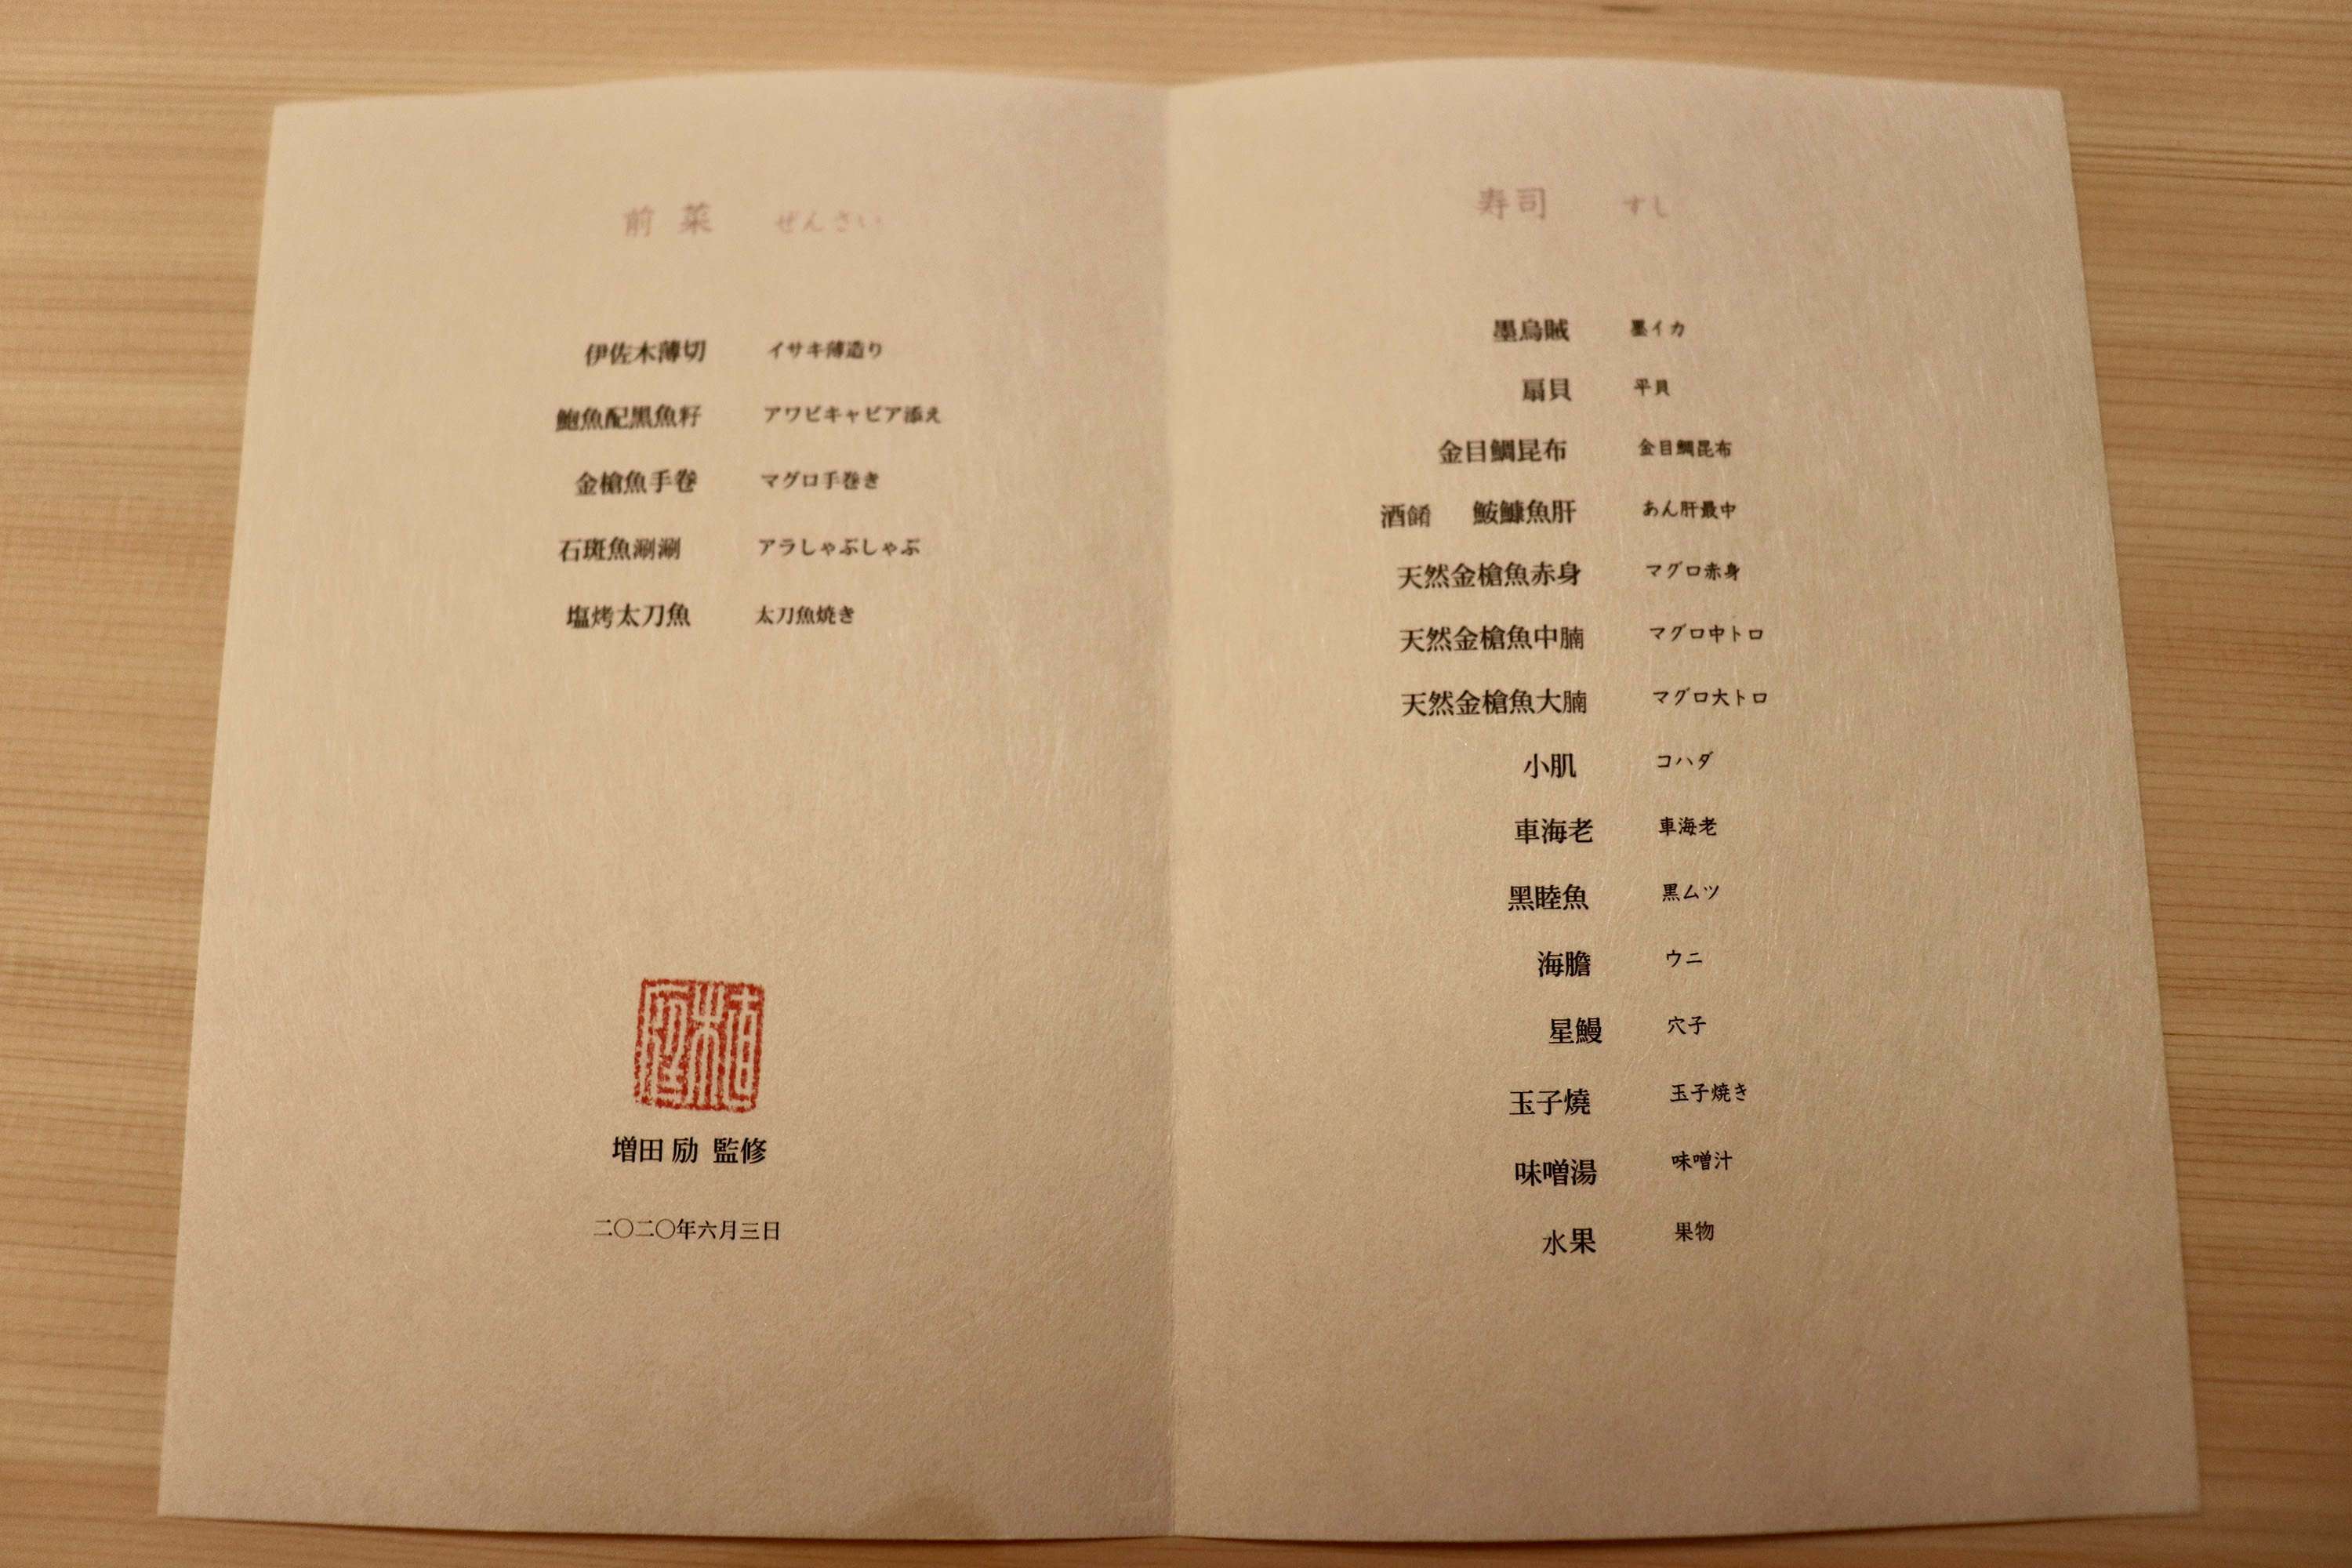 前菜 ぜんさい
伊佐木薄切 イサキ薄造り
鮑魚配黒魚籽 アワビキャビア添え
金槍魚手卷 マグロ手巻き
石斑魚涮涮 アラしゃぶしゃぶ
塩烤太刀魚 太刀魚焼き
増田 励 監修
二〇二〇年六月三日
寿司 すし
墨烏賊 墨イカ
扇貝 平貝
金目鯛昆布 金目鯛昆布
酒餚 鮟鱇魚肝 あん肝最中
天然金槍魚赤身 マグロ赤身
天然金槍魚中腩 マグロ中トロ
天然金槍魚大腩 マグロ大トロ
小肌 コハダ
車海老 車海老
黑睦魚 黒ムツ
海膽 ウニ
星鰻 穴子
玉子燒 玉子焼き
味噌湯 味噌汁
水果 果物